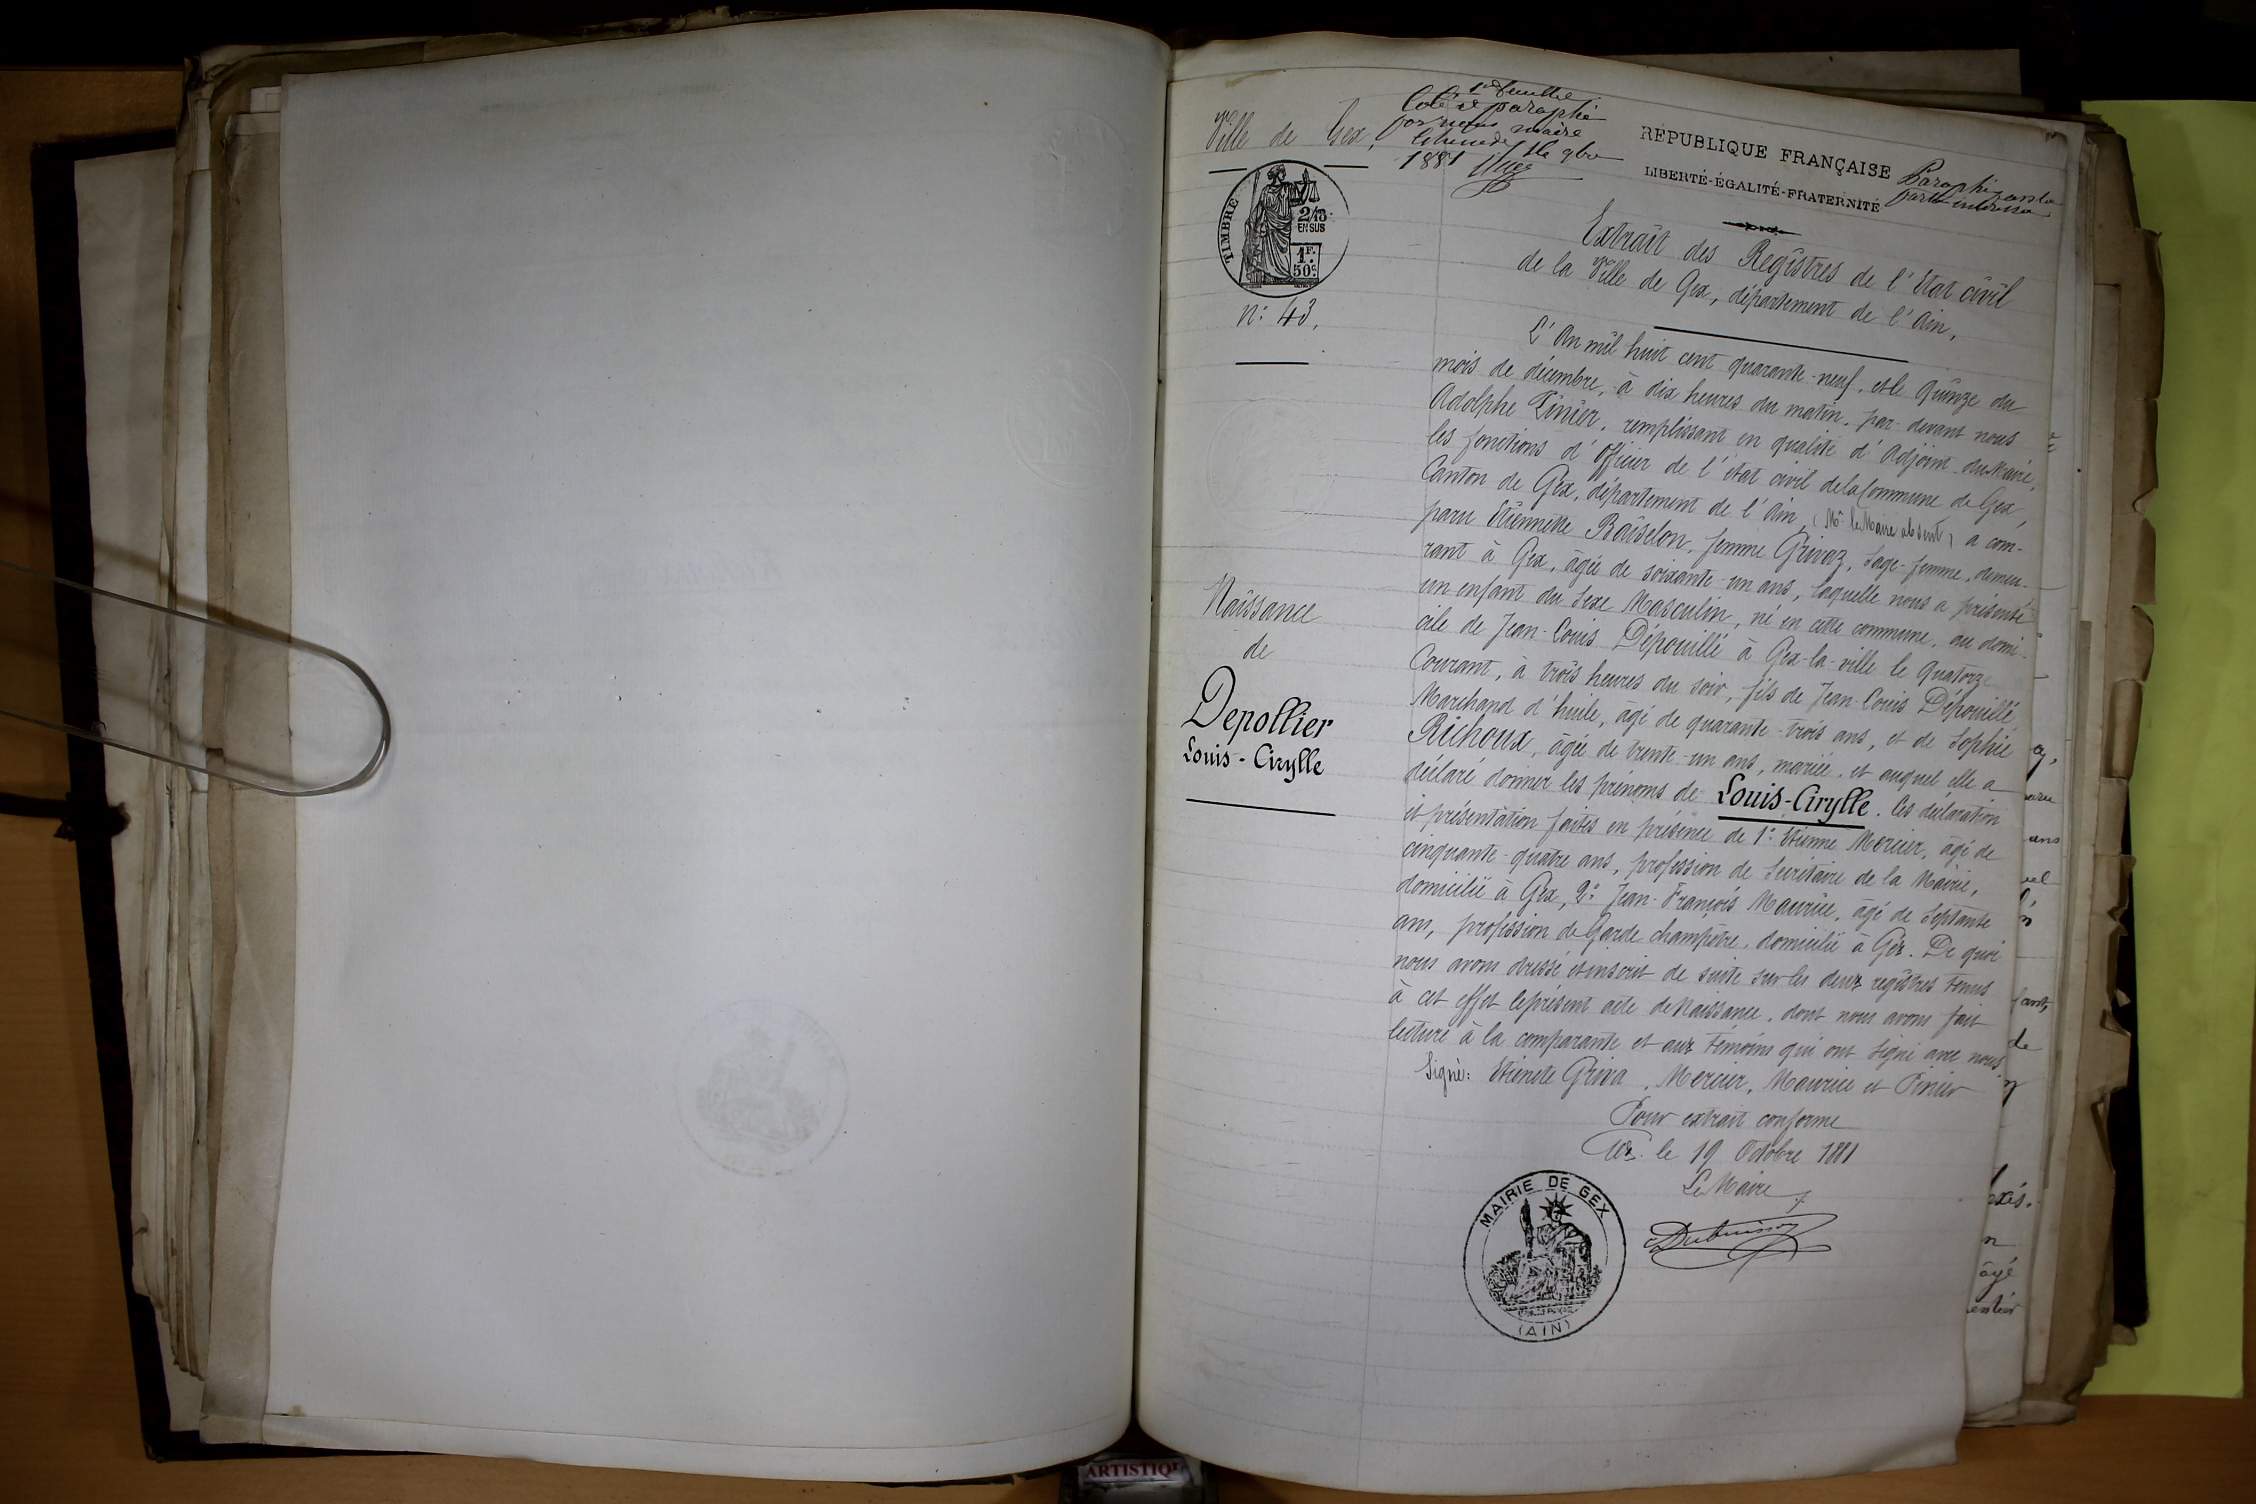 Ville de Gex,
1re feuille
Coté et paraphé
par nous maire
1881
RÉPUBLIQUE FRANÇAISE
LIBERTÉ-ÉGALITÉ-FRATERNITÉ
Paraphé
TIMBRE
2/10
EN SUS
1F.
50c.
N: 43.
Extrait des Registres de l'Etat civil
de la Ville de Gex, département de l'Ain.
L'An mil huit cent quarante-neuf, et le Quinze du
mois de décembre, à dix heures du matin, par devant nous
Adolphe Pinier, remplissant en qualité d'Adjoint du Maire,
les fonctions d'Officier de l'état civil de la Commune de Gex,
Canton de Gex, département de l'Ain, (Mr le Maire absent) a com-
paru Etiennette Baisselon, femme Grivaz, Sage-femme, demeu-
rant à Gex, âgée de soixante-un ans, laquelle nous a présenté
un enfant du Sexe Masculin, né en cette commune, au domi-
cile de Jean-Louis Dépouillé à Gex-la-ville le Quatorze
Courant, à trois heures du soir, fils de Jean-Louis Dépouillé
Marchand d'huile, âgé de quarante-trois ans, et de Sophie
Richoux, âgée de trente-un ans, mariée, et auquel elle a
déclaré donner les prénoms de Louis-Cirylle. Ces déclaration
et présentation faites en présence de 1º Etienne Mercier, âgé de
cinquante-quatre ans, profession de Secrétaire de la Mairie,
domicilié à Gex, 2º Jean-François Maurice, âgé de Septante
ans, profession de Garde champêtre, domicilié à Gex. De quoi
nous avons dressé et inscrit de suite sur les deux registres tenus
à cet effet le présent acte de Naissance, dont nous avons fait
lecture à la comparante et aux témoins qui ont Signé avec nous
Signé: Etienete Griva, Mercier, Maurice et Pinier
Naissance
de
Depollier
Louis-Cirylle
Pour extrait conforme
Gex le 19 Octobre 1881
Le Maire
Dubuisson
MAIRIE DE GEX
(AIN)
ans
fant,
de
n
âgé
ARTISTIQUE